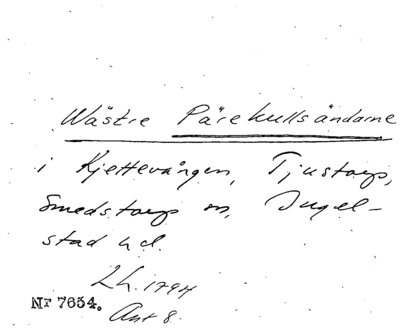 Wästre Pärekullsändarne
i Kjettevången, Tjustorp,
Smedstorps sn, Ingel-
stad hd.
LL. 1794
Akt 8.
Nr 7654.